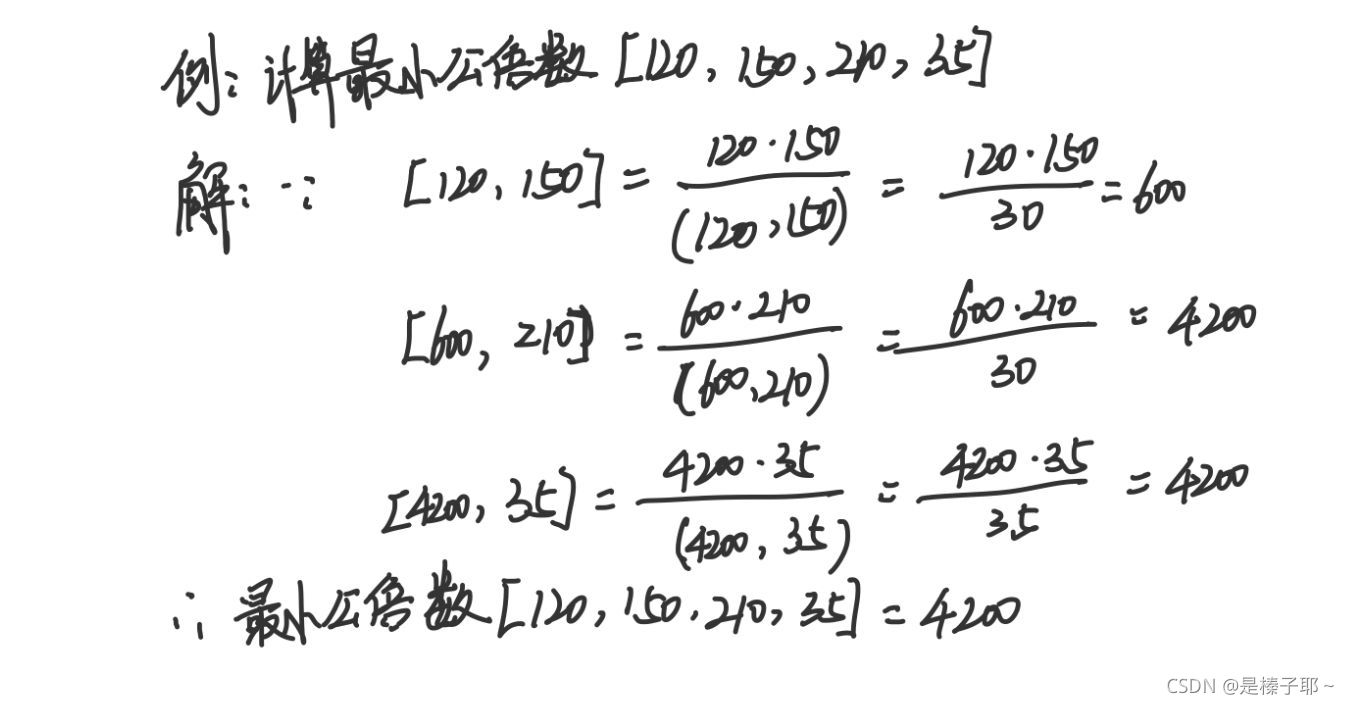 例：计算最小公倍数 [120, 150, 210, 35]
解：∵ [120, 150] = \frac{120·150}{(120,150)} = \frac{120·150}{30} = 600
[600, 210] = \frac{600·210}{(600,210)} = \frac{600·210}{30} = 4200
[4200, 35] = \frac{4200·35}{(4200, 35)} = \frac{4200·35}{35} = 4200
∴ 最小公倍数 [120, 150, 210, 35] = 4200
CSDN @是榛子耶～